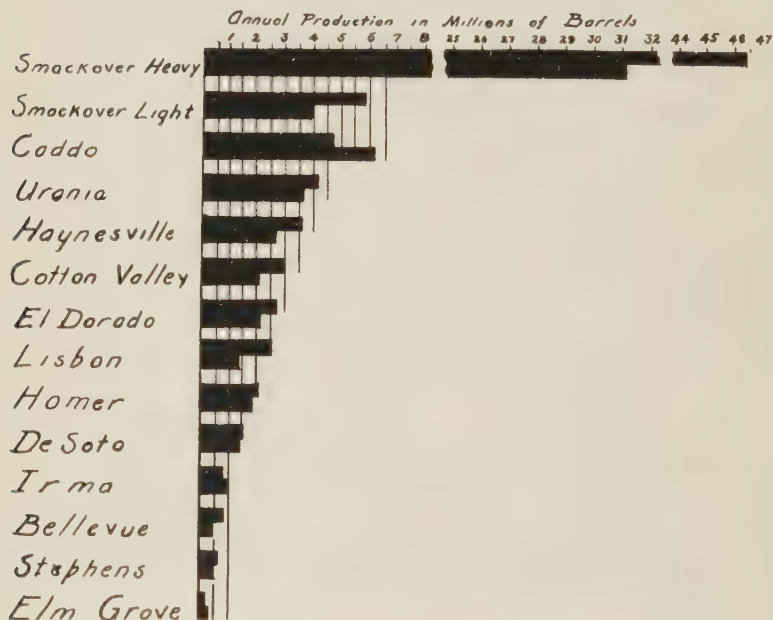 Annual Production in Millions of Barrels
1 2 3 4 5 6 7 8 25 26 27 28 29 30 31 32 44 45 46 47
Smackover Heavy
Smackover Light
Caddo
Urania
Haynesville
Cotton Valley
El Dorado
Lisbon
Homer
De Soto
Irma
Bellevue
Stephens
Elm Grove